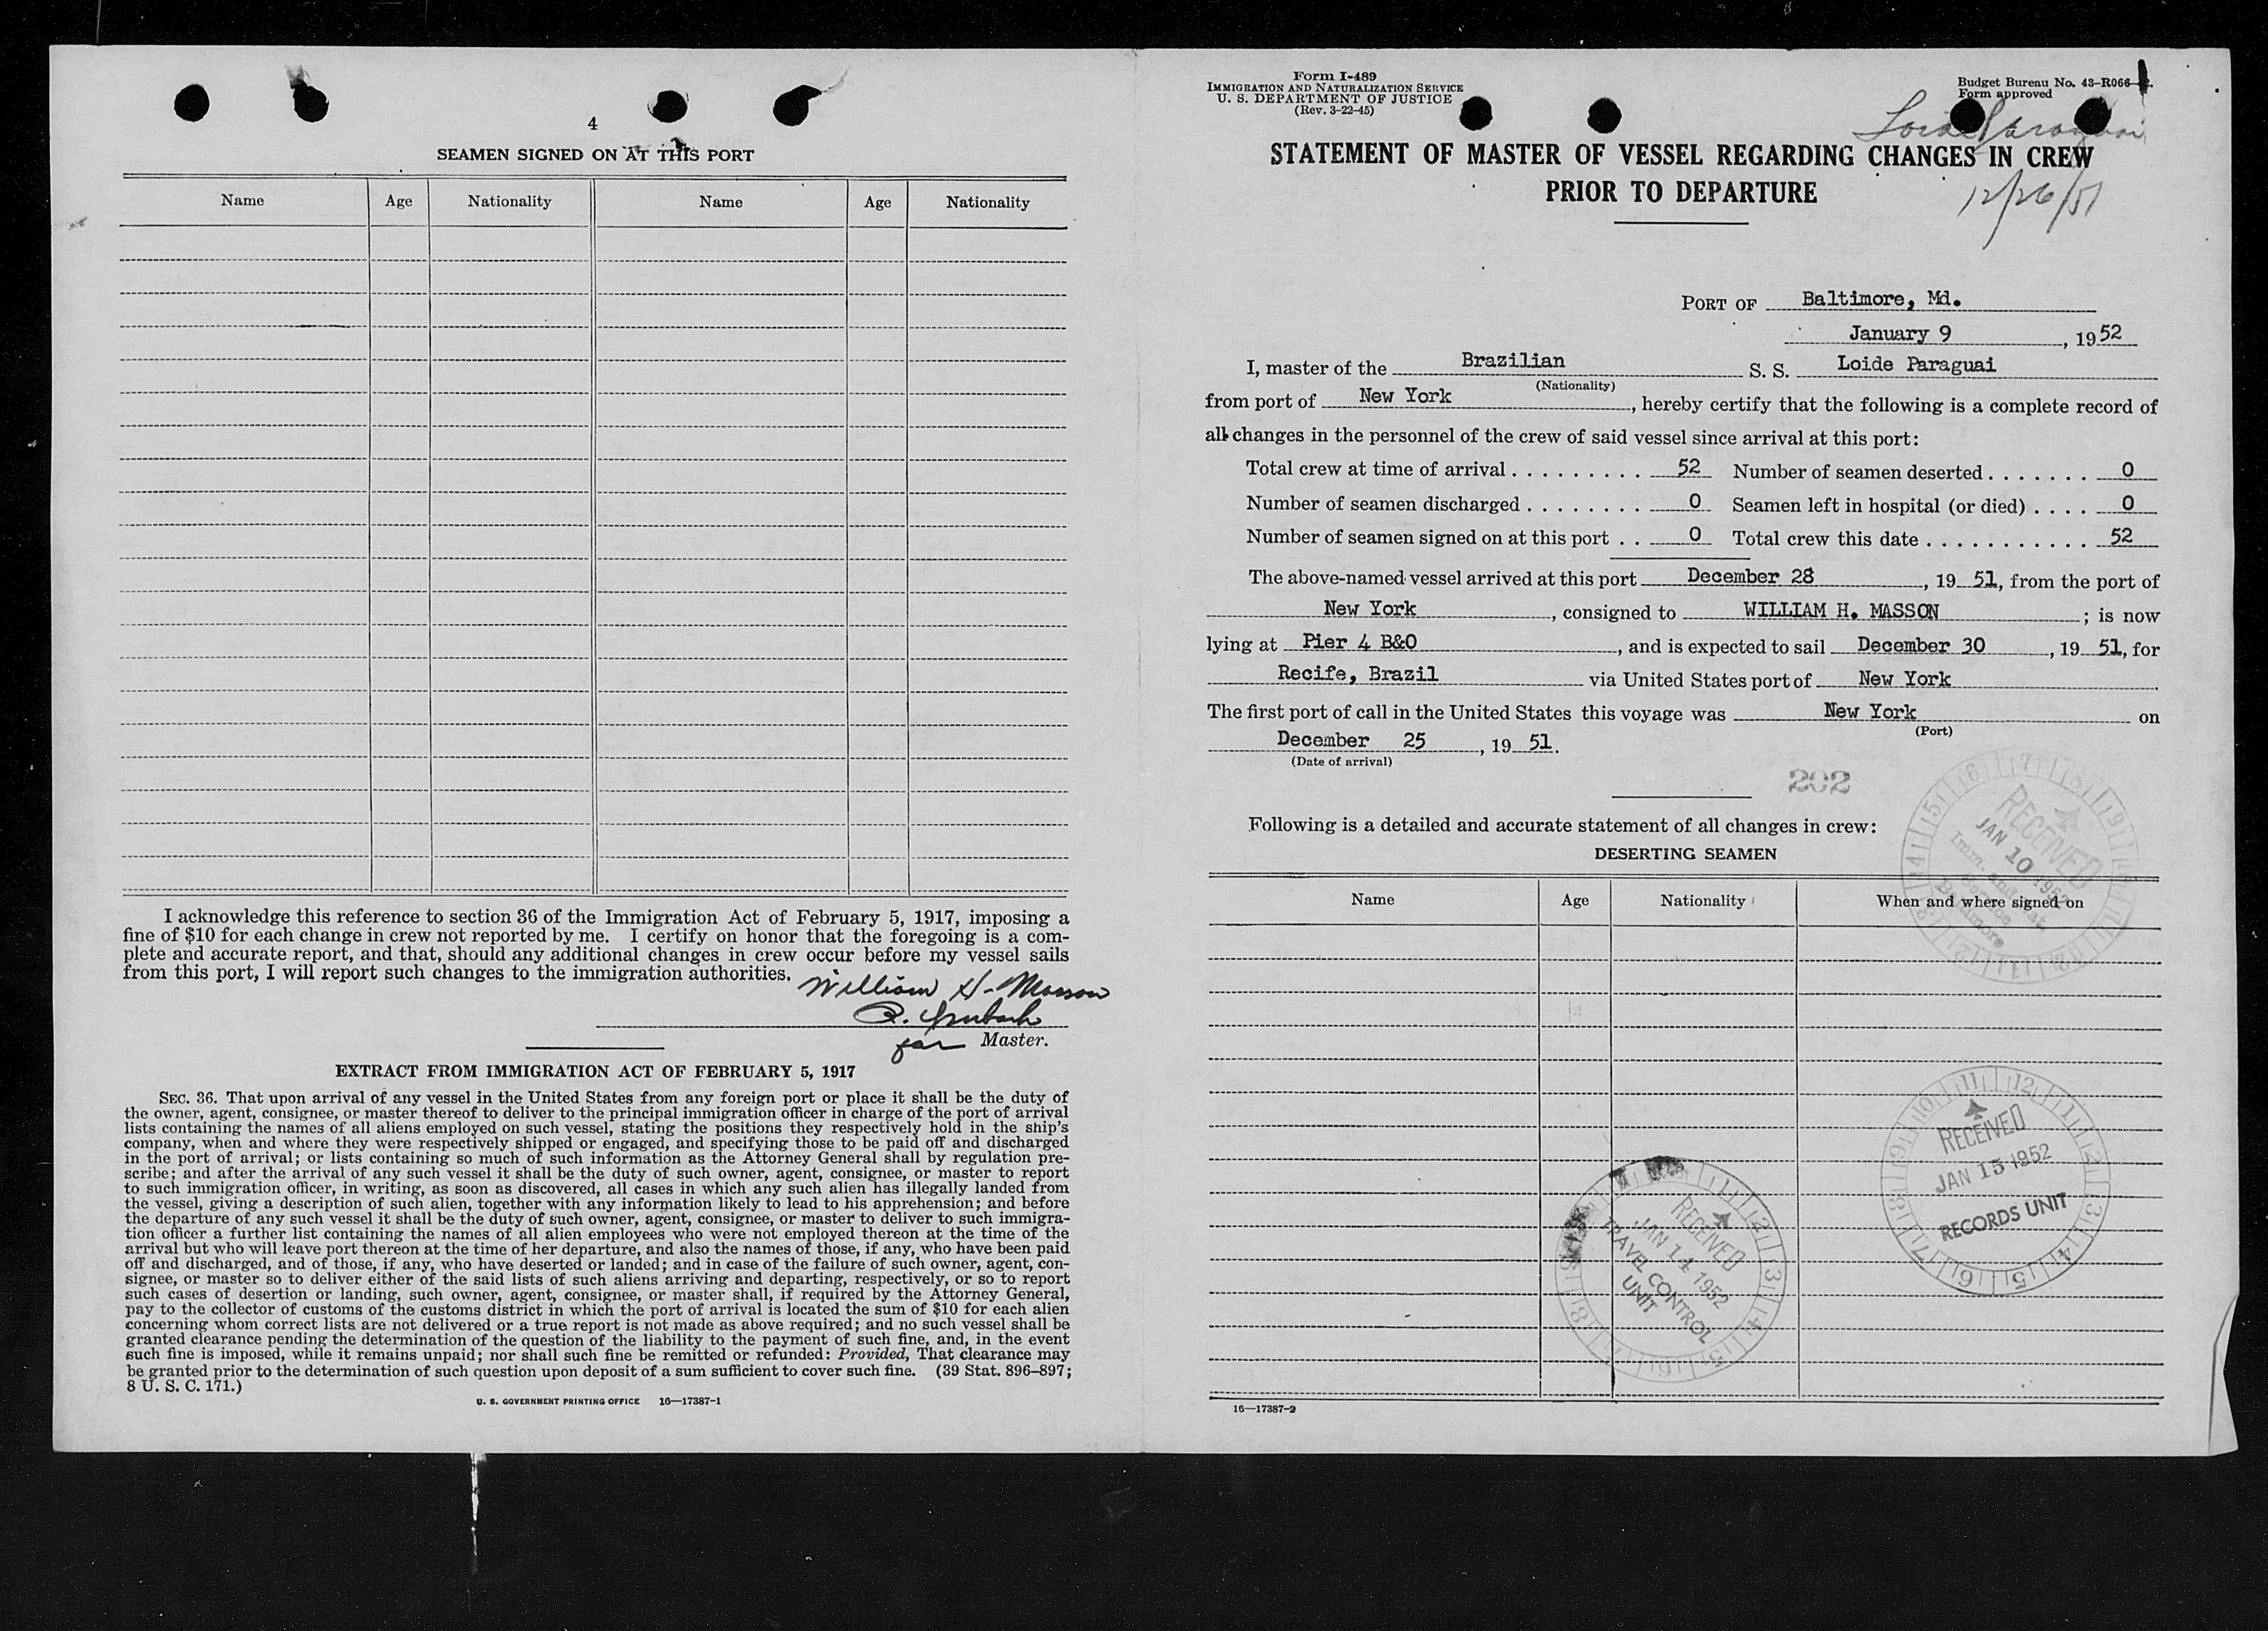 4
SEAMEN SIGNED ON AT THIS PORT
Name Age Nationality Name Age Nationality
I acknowledge this reference to section 36 of the Immigration Act of February 5, 1917, imposing a
fine of $10 for each change in crew not reported by me. I certify on honor that the foregoing is a com-
plete and accurate report, and that, should any additional changes in crew occur before my vessel sails
from this port, I will report such changes to the immigration authorities.
William H. Masson
for Master.
EXTRACT FROM IMMIGRATION ACT OF FEBRUARY 5, 1917
SEC. 36. That upon arrival of any vessel in the United States from any foreign port or place it shall be the duty of
the owner, agent, consignee, or master thereof to deliver to the principal immigration officer in charge of the port of arrival
lists containing the names of all aliens employed on such vessel, stating the positions they respectively hold in the ship's
company, when and where they were respectively shipped or engaged, and specifying those to be paid off and discharged
in the port of arrival; or lists containing so much of such information as the Attorney General shall by regulation pre-
scribe; and after the arrival of any such vessel it shall be the duty of such owner, agent, consignee, or master to report
to such immigration officer, in writing, as soon as discovered, all cases in which any such alien has illegally landed from
the vessel, giving a description of such alien, together with any information likely to lead to his apprehension; and before
the departure of any such vessel it shall be the duty of such owner, agent, consignee, or master to deliver to such immigra-
tion officer a further list containing the names of all alien employees who were not employed thereon at the time of the
arrival but who will leave port thereon at the time of her departure, and also the names of those, if any, who have been paid
off and discharged, and of those, if any, who have deserted or landed; and in case of the failure of such owner, agent, con-
signee, or master so to deliver either of the said lists of such aliens arriving and departing, respectively, or so to report
such cases of desertion or landing, such owner, agent, consignee, or master shall, if required by the Attorney General,
pay to the collector of customs of the customs district in which the port of arrival is located the sum of $10 for each alien
concerning whom correct lists are not delivered or a true report is not made as above required; and no such vessel shall be
granted clearance pending the determination of the question of the liability to the payment of such fine, and, in the event
such fine is imposed, while it remains unpaid; nor shall such fine be remitted or refunded: Provided, That clearance may
be granted prior to the determination of such question upon deposit of a sum sufficient to cover such fine. (39 Stat. 896–897;
8 U. S. C. 171.)
U. S. GOVERNMENT PRINTING OFFICE 16—17387-1
Form I-489
IMMIGRATION AND NATURALIZATION SERVICE
U. S. DEPARTMENT OF JUSTICE
(Rev. 3-22-45)
Budget Bureau No. 43-R066
Form approved
Loide Paraguai
STATEMENT OF MASTER OF VESSEL REGARDING CHANGES IN CREW
PRIOR TO DEPARTURE
12/26/51
PORT OF Baltimore, Md.
January 9, 1952
I, master of the Brazilian S. S. Loide Paraguai
(Nationality)
from port of New York, hereby certify that the following is a complete record of
all changes in the personnel of the crew of said vessel since arrival at this port:
Total crew at time of arrival . . . . . . . . . 52 Number of seamen deserted . . . . . . . 0
Number of seamen discharged . . . . . . . . 0 Seamen left in hospital (or died) . . . . 0
Number of seamen signed on at this port . . 0 Total crew this date . . . . . . . . . . . . 52
The above-named vessel arrived at this port December 28, 19 51, from the port of
New York, consigned to WILLIAM H. MASSON; is now
lying at Pier 4 B&O, and is expected to sail December 30, 19 51, for
Recife, Brazil via United States port of New York.
The first port of call in the United States this voyage was New York on
(Port)
December 25, 19 51.
(Date of arrival)
202
Following is a detailed and accurate statement of all changes in crew:
DESERTING SEAMEN
Name Age Nationality When and where signed on
RECEIVED
JAN 10 1952
Baltimore
RECEIVED
JAN 15 1952
RECORDS UNIT
RECEIVED
JAN 14 1952
TRAVEL CONTROL
UNIT
16—17387-2